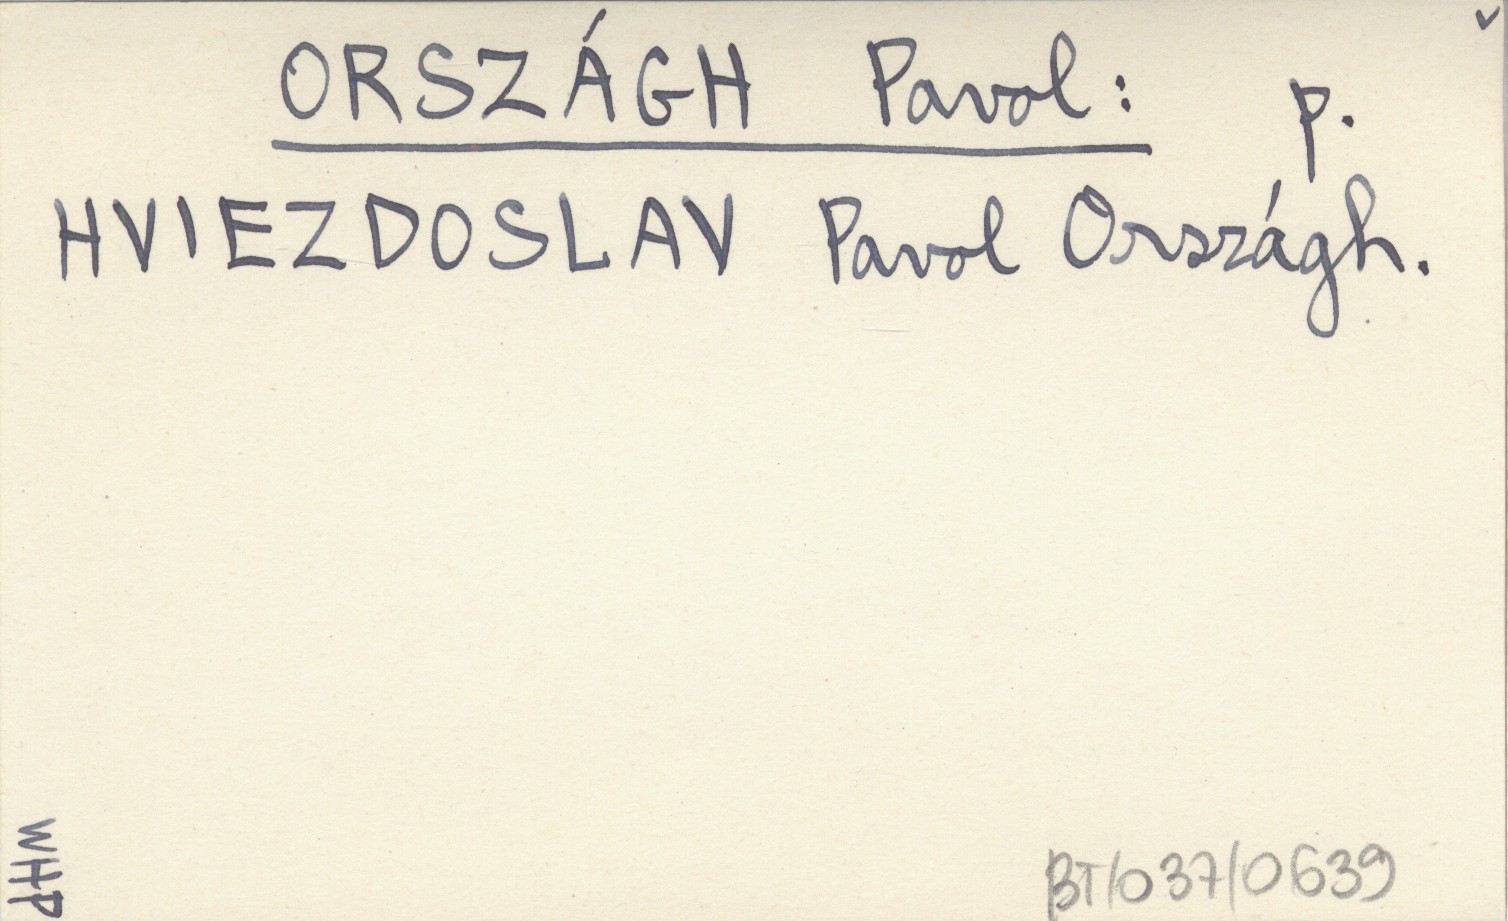 ORSZÁGH Pavol: p.
HVIEZDOSLAV Pavol Országh.
WHP
BT/037/0639